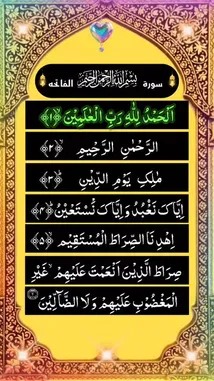 سورة بِسْمِ اللهِ الرَّحْمٰنِ الرَّحِيْمِ الفاتحه
اَلْحَمْدُ لِلّٰهِ رَبِّ الْعٰلَمِيْنَ ﴿۱﴾
الرَّحْمٰنِ الرَّحِيْمِ ﴿۲﴾
مٰلِكِ يَوْمِ الدِّيْنِ ﴿۳﴾
اِيَّاكَ نَعْبُدُ وَاِيَّاكَ نَسْتَعِيْنُ ﴿۴﴾
اِهْدِنَا الصِّرَاطَ الْمُسْتَقِيْمَ ﴿۵﴾
صِرَاطَ الَّذِيْنَ اَنْعَمْتَ عَلَيْهِمْ غَيْرِ
الْمَغْضُوْبِ عَلَيْهِمْ وَلَا الضَّآلِّيْنَ